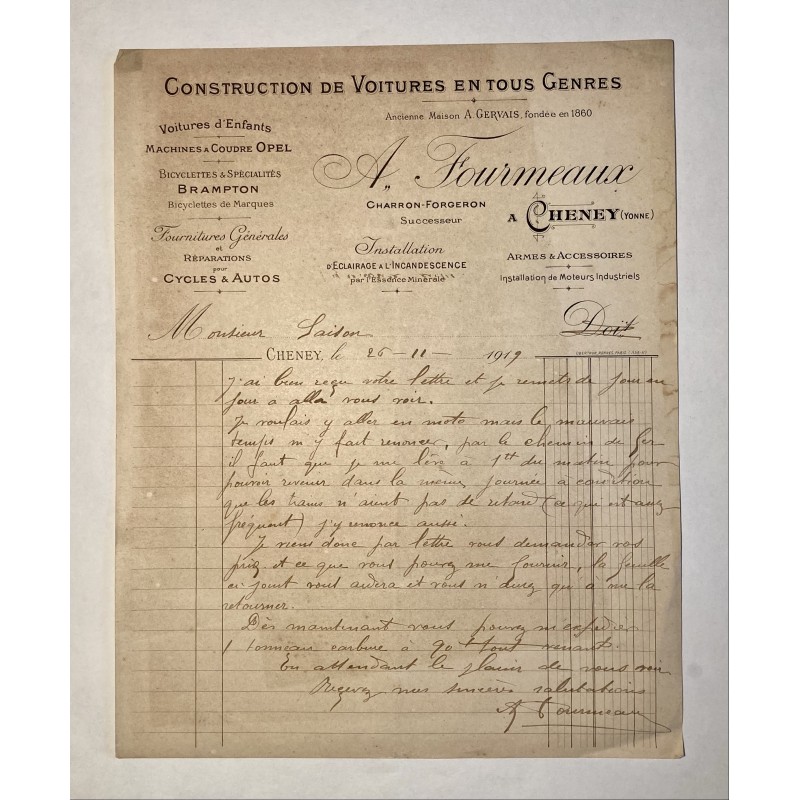 CONSTRUCTION DE VOITURES EN TOUS GENRES
Ancienne Maison A. GERVAIS, fondée en 1860
Voitures d'Enfants
MACHINES A COUDRE OPEL
BICYCLETTES & SPÉCIALITÉS
BRAMPTON
Bicyclettes de Marques
Fournitures Générales
et
RÉPARATIONS
pour
CYCLES & AUTOS
A. Fourmeaux
CHARRON-FORGERON
Successeur
A CHENEY (YONNE)
Installation
D'ECLAIRAGE A L'INCANDESCENCE
par l'Essence Minérale
ARMES & ACCESSOIRES
Installation de Moteurs Industriels
Monsieur Saison
Doit
CHENEY, le 26-11-1919
j'ai bien reçu votre lettre et je remets de jour en
jour a allé vous voir.
Je voulais y aller en moto mais le mauvais
temps m'y fait renoncer, par le chemin de fer
il faut que je me lève à 1h du matin pour
pouvoir revenir dans la même journée a condition
que les trains n'aient pas de retard (ce qui est assez
fréquent) j'y renonce aussi.
Je viens donc par lettre vous demander vos
prix et ce que vous pouvez me fournir, la feuille
ci joint vous aidera et vous n'aurez qu'à me la
retourner.
Dès maintenant vous pouvez m'expédier
1 tonneau carbure à 90f tout venant.
En attendant le plaisir de vous voir
Recevez mes sincères salutations
A Fourmeaux